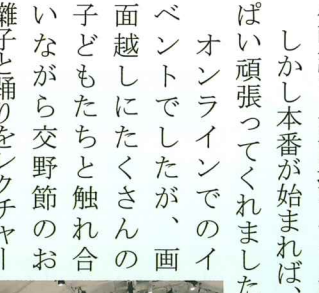 しかし本番が始まれば、
ぱい頑張ってくれました
オンラインでのイ
ベントでしたが、画
面越しにたくさんの
子どもたちと触れ合
いながら交野節のお
囃子と踊りをレクチャー